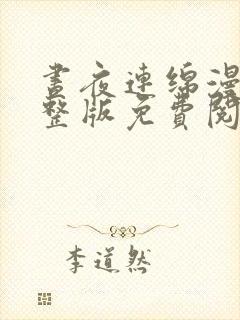 晝夜連綿漫
整版免費閱
李道然